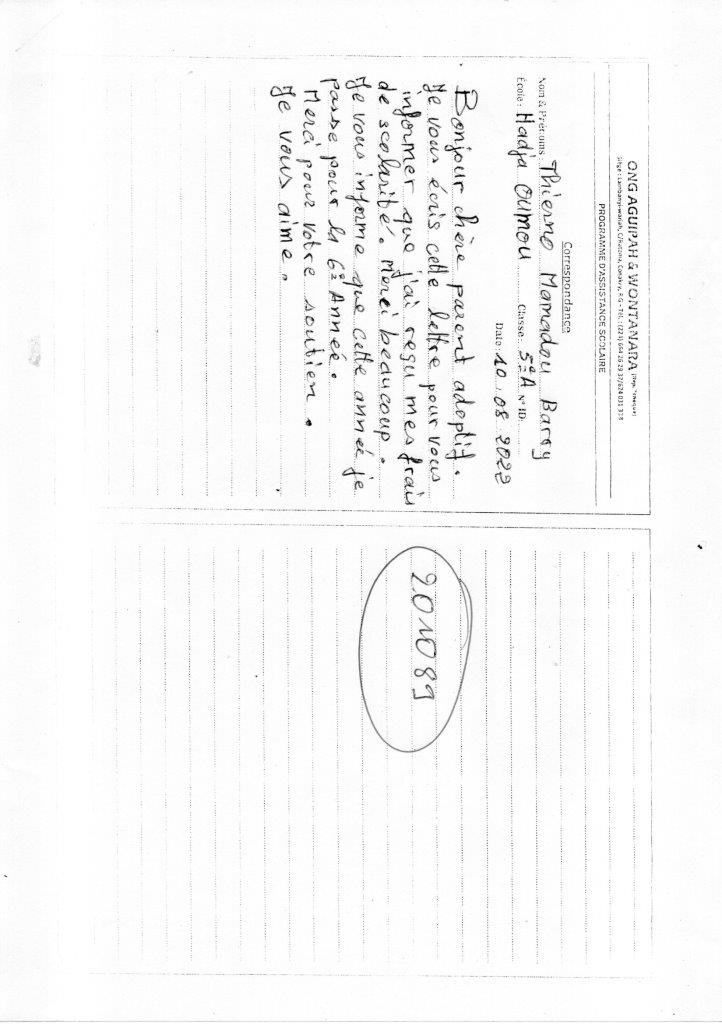 ONG AGUIPAH & WONTANARA
PROGRAMME D'ASSISTANCE SCOLAIRE
Correspondance
Nom & Prénoms: Thierno Mamadou Barry
École: Hadja Oumou Classe: 5e A N° ID:
Date: 10.08 2022
Bonjour chère parent adoptif.
Je vous écris cette lettre pour vous
informer que j'ai reçu mes frais
de scolarité. Merci beaucoup.
Je vous informe que cette année je
passe pour la 6e Année.
Merci pour votre soutien.
Je vous aime.
201089